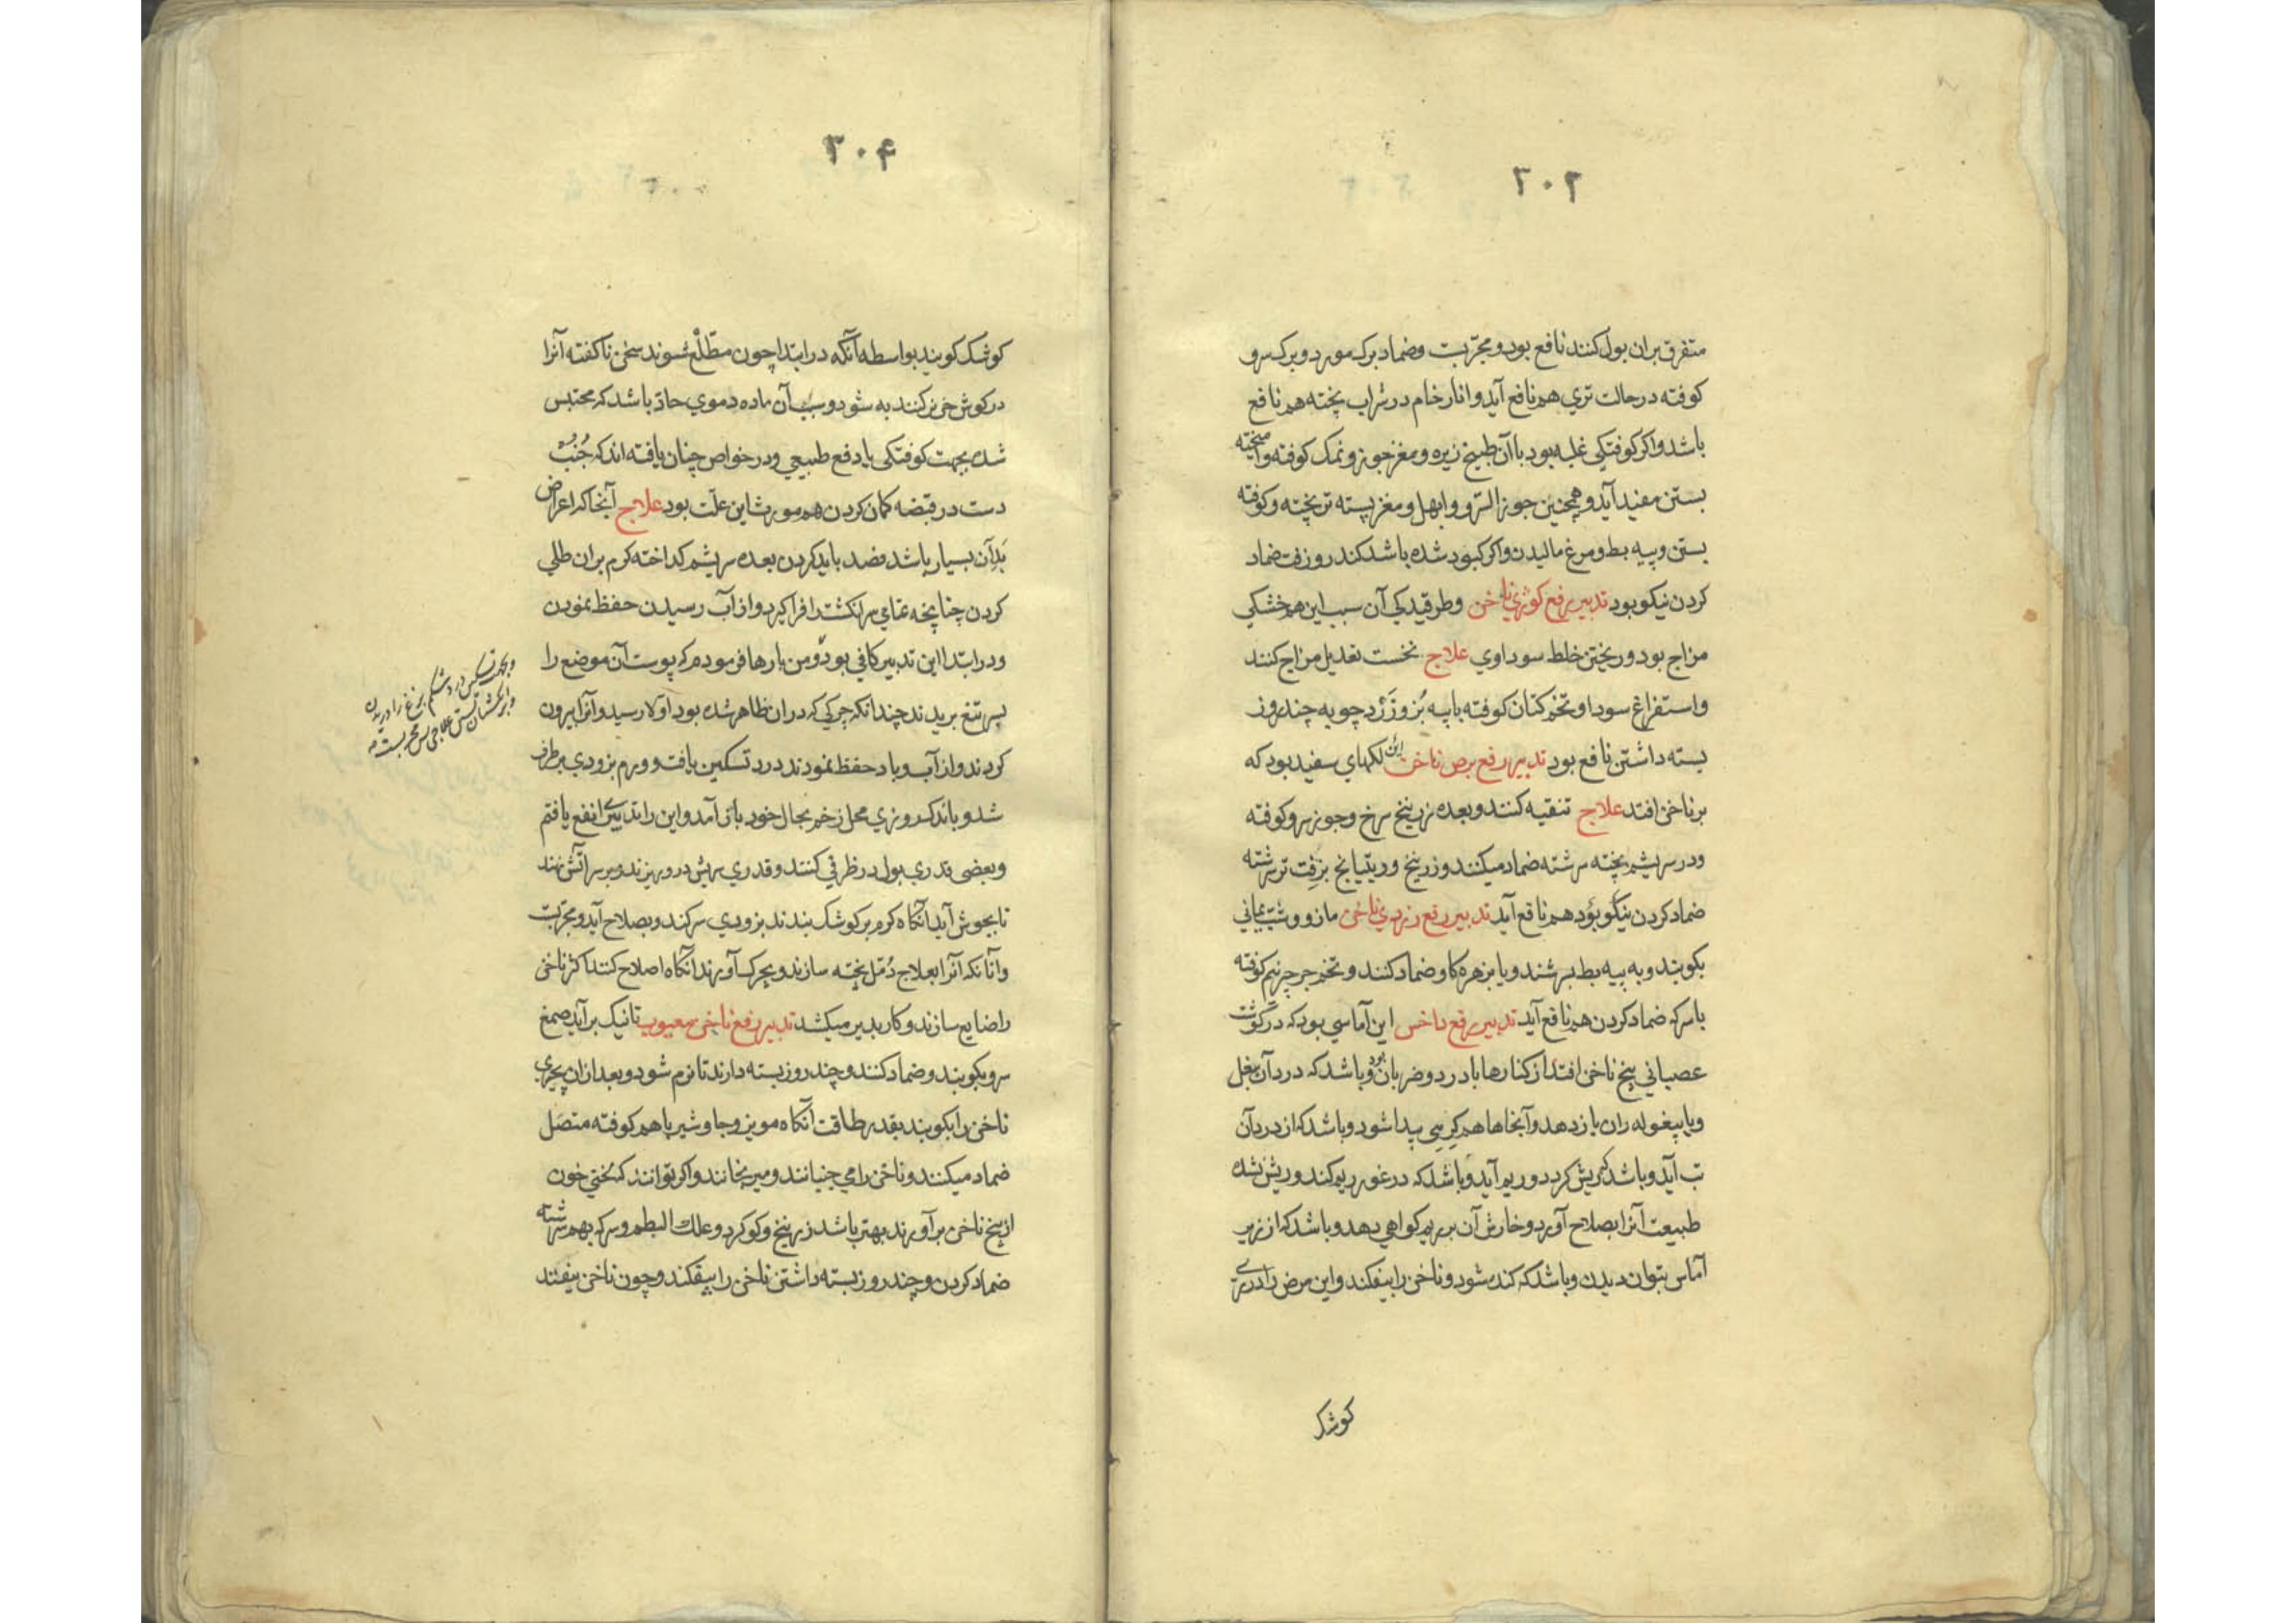 ۳۰۳
متفرق بران بول کنند نافع بود و مجربست وضماد برک مورد و برک سرو
کوفته درحالت تری هم نافع آید وانار خام در شراب پخته هم نافع
باشد واکر کوفتکی غلبه بود باآن طبیخ زیره ومغز جوز ونمک کوفته وآمیخته
بستن مفید آید وهمچنین جوز السرو وابهل ومغز پسته تر پخته وکوفته
بستن وپیه بط ومرغ مالیدن واکر کبود شده باشد کندر وزفت ضماد
کردن نیکو بود تدبیر رفع کوژی ناخن وطرقیدکی آن سبب این هم خشکی
مزاج بود وریختن خلط سوداوی علاج نخست تعدیل مزاج کنند
واستفراغ سودا وتخم کتان کوفته باپیه بُز وزَرْد چوبه چند روز
بسته داشتن نافع بود تدبیر رفع برص ناخن این لکهای سفید بود که
برناخن افتد علاج تنقیه کنند وبعده زرنیخ سرخ وجوز سرو کوفته
ودر سریشم پخته سرشته ضماد میکنند وزرنیخ وریتیانج بزِفت تر سرشته
ضماد کردن نیکو بوَد هم نافع آید تدبیر رفع زردی ناخن مازو وشب یمانی
بکوبند وبه پیه بط بسرشند ویا بزهره کاو ضماد کنند وتخم جرجر نیم کوفته
باسرکه ضماد کردن هم نافع آید تدبیر رفع داخس این آماسی بود که در کوشت
عصبانی بیخ ناخن افتد از کنارها بادرد وضربان بود وباشد که درد آن ببغل
ویا بیغوله ران باز دهد وآنجاها هم کِرِهی پیدا شود وباشد که از درد آن
تب آید وباشد که ریش کردد وریم آید وباشد که درغور ریم کند وریش نشده
طبیعت آنرا بصلاح آورد وخارش آن بر ریم کواهی دهد وباشد که از زیر
آماس بتوان دیدن وباشد که کنده شود وناخن را بیفکند واین مرض را در ری
کوشک
۳۰۴
کوشک کویند بواسطه آنکه در ابتدا چون مطّلْع شوند سخن ناکفته آنرا
درکوش خر کنند به شود وسبب آن ماده دموی حادّ باشد که محتبس
شده بجهت کوفتکی یا دفع طبیعی ودر خواص چنان یافته اند که جُنُب
دست در قبضه کمان کردن هم مورث این علّت بود علاج آنجا که اعراض
بَدِ آن بسیار باشد فصد باید کردن بعده سریشم کداخته کرم بران طلی
کردن چنانچه تمامی سر انکشت را فرا کیرد واز آب رسیدن حفظ نمودن
ودر ابتدا این تدبیر کافی بود ومن بارها فرمودم که پوست آن موضع را
بسر تیغ بریدند چندانکه چرکی که دران ظاهر شده بود اولا رسید وآنرا بیرون
کردند واز آب وباد حفظ نمودند درد تسکین یافت وورم بزودی برطرف
شد وباندک روزی محل زخم بحال خود باز آمد واین را تدبیری انفع یافتم
وبعضی قدری بول در ظرفی کنند وقدری سریش درو ریزند وبر سر آتش نهند
تا بجوش آید آنکاه کرم بر کوشک بندند بزودی سر کند وبصلاح آید ومجربست
وآنانکه آنرا بعلاج دُمّل پخته سازند وبچرک آورند آنکاه اصلاح کنند اکثر ناخن
را ضایع سازند وکار بدیر میکشد تدبیر رفع ناخن معیوب تا نیک بر آید صمغ
سرو بکوبند وضماد کنند وچند روز بسته دارند تا نرم شود وبعد ازان بچیزی
ناخن را بکوبند بقدر طاقت آنکاه مویز وجاوشیر باهم کوفته متصَل
ضماد میکنند وناخن را می جنبانند ومیرنجانند واکر توانند که لختی خون
از بیخ ناخن بر آورند بهتر باشد زرنیخ وکوکرد وعلک البطم وسرکه بهم سرشته
ضماد کردن وچند روز بسته داشتن ناخن را بیفکند وچون ناخن بیفتد
وبجهت تسکین درد شکم مرغ را دریدن